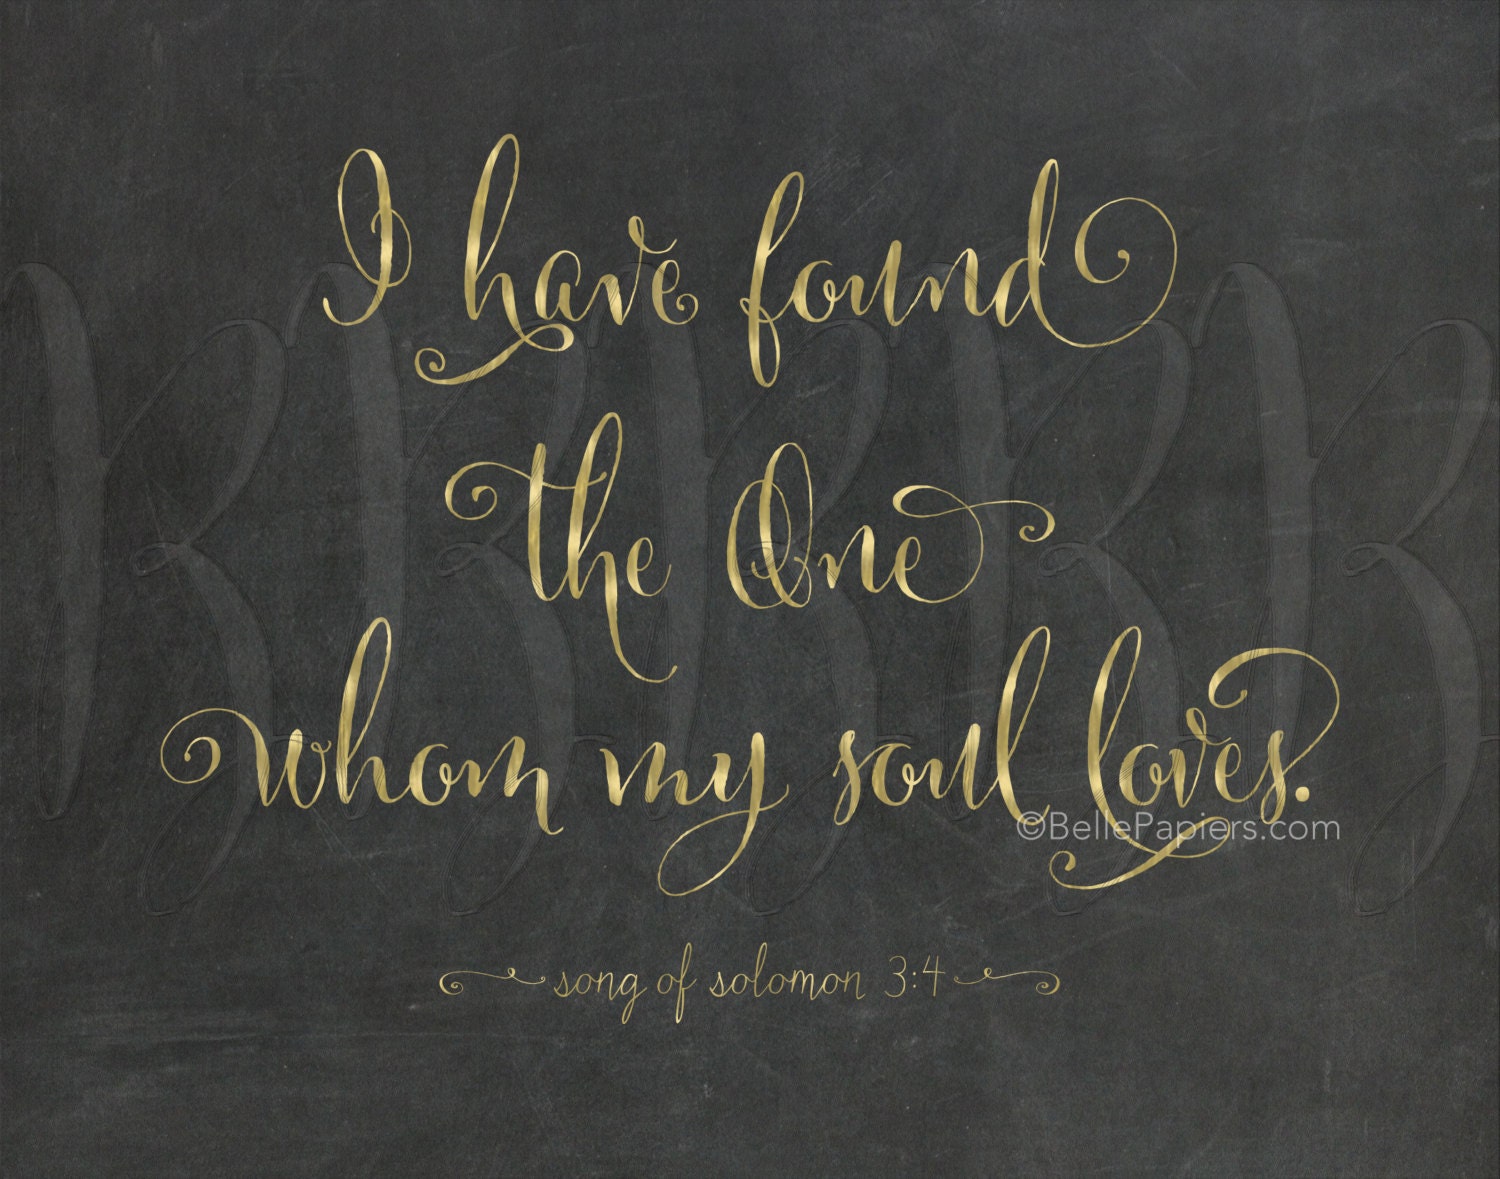 I have found
the One
whom my soul loves.
©BellePapiers.com
song of solomon 3:4